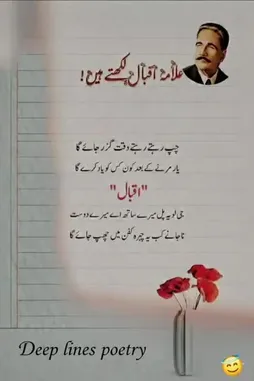 علامہ اقبال لکھتے ہیں!
چپ رہتے رہتے وقت گزر جائے گا
یار مرنے کے بعد کون کس کو یاد کرے گا
"اقبال"
جی لو یہ پل میرے ساتھ اے میرے دوست
نا جانے کب یہ چہرہ کفن میں چھپ جائے گا
Deep lines poetry